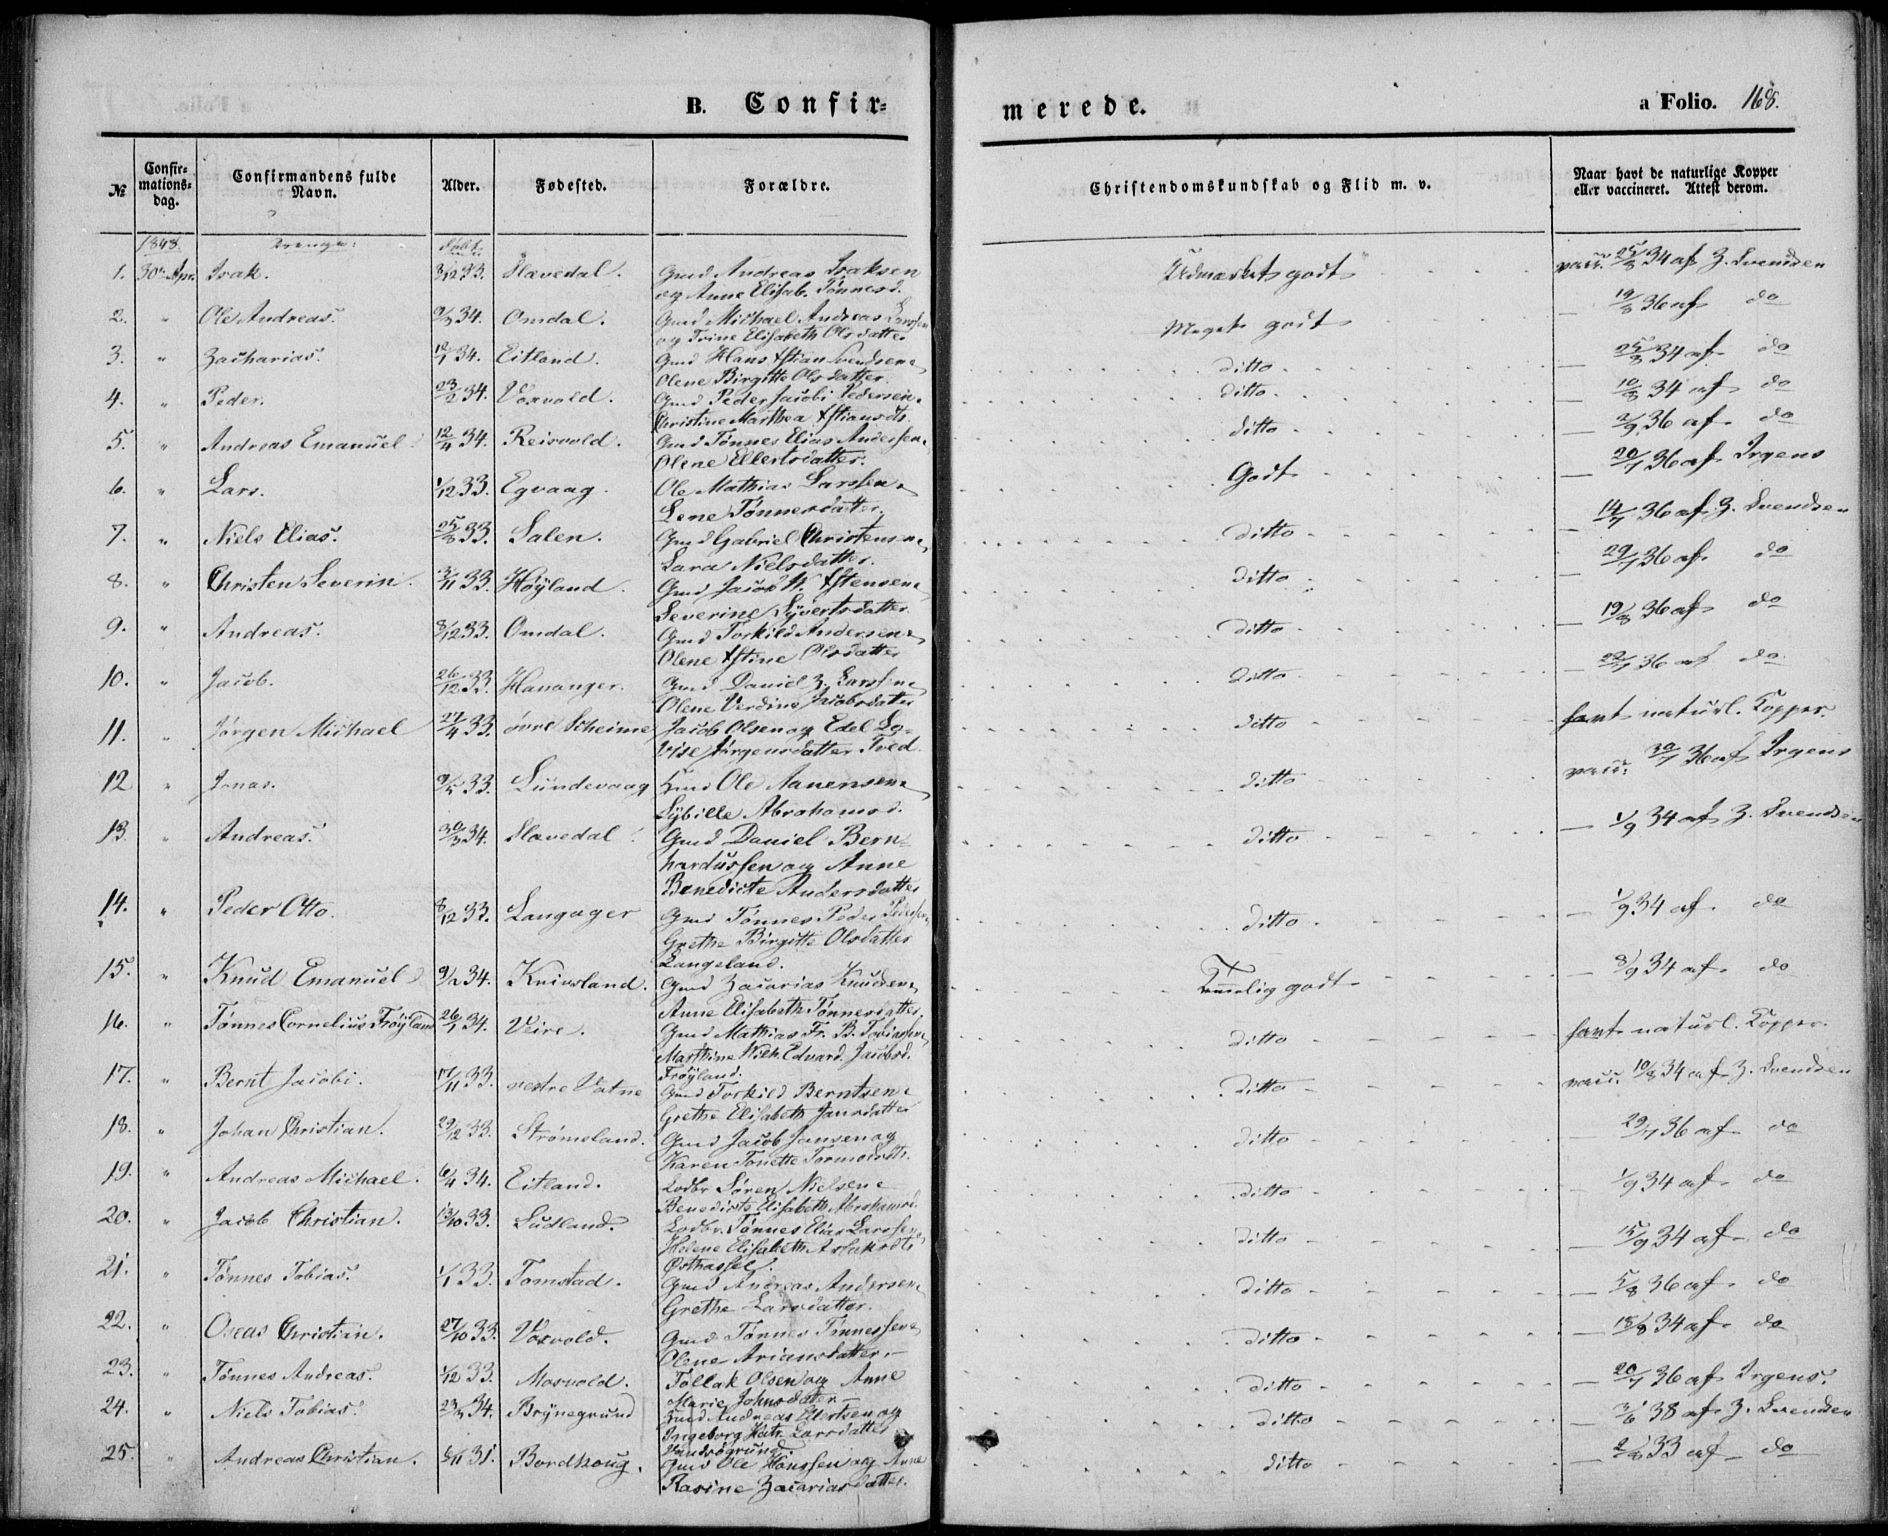 B. Confir=
merede.
a Folio. 168.
No
Confir=
mations=
dag.
Confirmandens fulde
Navn.
Alder.
Fødested.
Forældre.
Christendomskundskab og Flid m. v.
Naar havt de naturlige Kopper
eller vaccineret. Attest derom.
1848. Drenge: født
1. 30te Apr. Isak. 3/12 33. Slævedal. Gmd Andreas Isaksen Udmærket godt vacc. 25/8 34 af Z. Svendsen
og Anne Elisab. Tønnesd.
2. " Ole Andreas. 9/3 34. Omdal. Gmd Michael Andreas Larssen Meget godt 19/8 36 af do
og Trine Elisabeth Olsdatter
3. " Zacharias. 12/1 34. Eitland. Gmd Hans Xstian Svendsen ditto 25/8 34 af do
Olene Birgitte Olsdatter.
4. " Peder. 23/2 34. Vosvold. Gmd Peder Jacobi Pedersen ditto 10/8 34 af do
Christine Marthea Xstiansdt.
5. " Andreas Emanuel 12/4 34. Reisvold. Gmd Tønnes Elias Andersen ditto 2/9 36 af do
Olene Ellertsdatter.
6. " Lars. 1/12 33. Egvaag. Ole Mathias Larssen Godt 20/7 36 af Irgens
Lene Tønnesdatter.
7. " Niels Elias. 25/8 33. Salen. Gmd Gabriel Christensen ditto 14/7 36 af Z. Svendsen
Sara Nielsdatter.
8. " Christen Severin. 3/11 33. Høyland. Gmd Jacob W. Xstensen ditto 29/7 36 af do
Severine Syvertsdatter
9. " Andreas. 8/12 33. Omdal. Gmd Torkild Andersen ditto 19/8 36 af do
Olene Xstine Olsdatter
10. " Jacob. 26/12 33. Hananger. Gmd Daniel Z. Larssen ditto 22/7 36 af do
Olene Verdine Jacobsdatter
11. " Jørgen Michael 27/4 33. øvre Skeime Jacob Olsen og Edel Lo- ditto havt naturl. Kopper.
vise Jørgensdatter Tved.
12 " Jonas. 9/5 33. Lundevaag Gmd Ole Aanensen ditto vacc. 30/7 36 af Irgens
Sybille Abrahamsd.
13. " Andreas. 30/3 34. Slævedal Gmd Daniel Bern- ditto 1/9 34 af Z. Svendsen
hardussen og Anne
Benedicte Andersdatter
14. " Peder Otto. 8/12 33. Langager Gmd Tønnes Peder Pedersen ditto 1/9 34 af do
Grethe Birgitte Olsdatter
Langeland.
15. " Knud Emanuel 9/2 34. Knivsland. Gmd Zacarias Knudsen Temmelig godt 8/9 34 af do
Anne Elisabeth Tønnesdatter
16. " Tønnes Cornelius Frøyland 26/1 34. Veire. Gmd Mathias Fr. B. Tobiassen ditto havt naturl. Kopper.
Marthine Wilh. Edvard. Jacobsd.
Frøyland.
17. " Bernt Jacobi. 17/11 33. vestre Vatne Gmd Torkild Berntsen ditto vacc. 10/8 34 af Z. Svendsen
Grethe Elisabeth Jansdatter
18. " Johan Christian. 29/12 33. Strømsland. Gmd Jacob Jansen og ditto 29/7 36 af do
Karen Tonette Tormodsdt.
19. " Andreas Michael. 6/4 34. Eitland. Lodbr Søren Nielsen ditto 1/9 34 af do
Benedicte Elisabeth Abrahamsd.
20. " Jacob Christian. 13/10 33. Sudland. Lodbr. Tønnes Elias Larssen ditto 15/9 34 af do
Helene Elisabeth Aslaksdt.
Østhassel.
21. " Tønnes Tobias. 1/1 33. Tomstad. Gmd Andreas Andersen ditto 5/8 36 af do
Grethe Larsdatter.
22. " Oseas Christian. 27/10 33. Vosvold. Gmd Tønnes Tønnessen ditto 18/8 34 af do
Olene Ariansdatter.
23. " Tønnes Andreas. 1/12 33. Mosvold. Tollak Olsen og Anne ditto 20/7 36 af Irgens.
Marie Johnsdatter
24. " Niels Tobias. 23/3 34. Brynegrund Gmd Andreas Ellertsen og ditto 3/6 38 af Z. Svendsen
Ingeborg Katr. Larsdatter
25. " Andreas Christian. 6/11 31. Bordhoug. Gmd Ole Hanssen og Anne ditto 2/8 33 af do
Rasine Zacariasdatter.